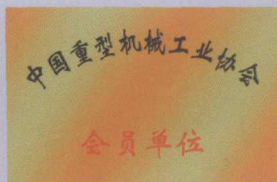 中国重型机械工业协会
会员单位